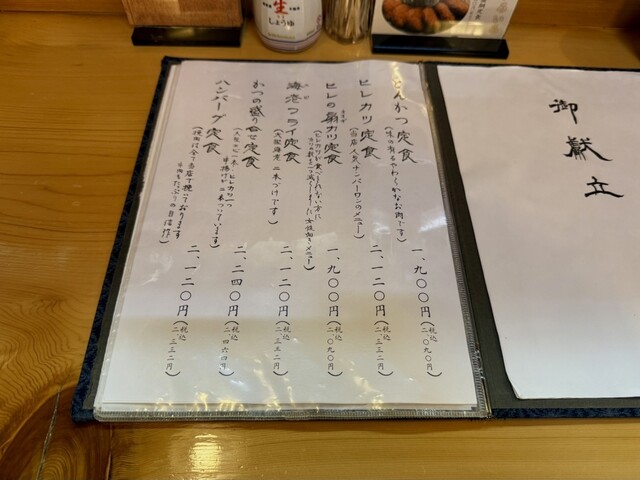 御献立
とんかつ定食
(味の有るやわらかなお肉です)
一、九〇〇円(税込 二、〇九〇円)
ヒレカツ定食
(当店人気ナンバーワンのメニュー)
二、一二〇円(税込 二、三三二円)
ヒレの カツ定食
(ヒレカツが食べきれない方に
カツの数を一つ減らしました女性向きメニュー)
一、九〇〇円(税込 二、〇九〇円)
海老フライ定食
(大型海老 二本づけです)
二、一二〇円(税込 二、三三二円)
かつの盛り合せ定食
(大海老一本、ヒレカツ一つ
串揚げが二本ついています)
二、二四〇円(税込 二、四六四円)
ハンバーグ定食
(挽肉は全て当店で挽いております
牛肉もたっぷりの自信作)
二、一二〇円(税込 二、三三二円)
生
しょうゆ